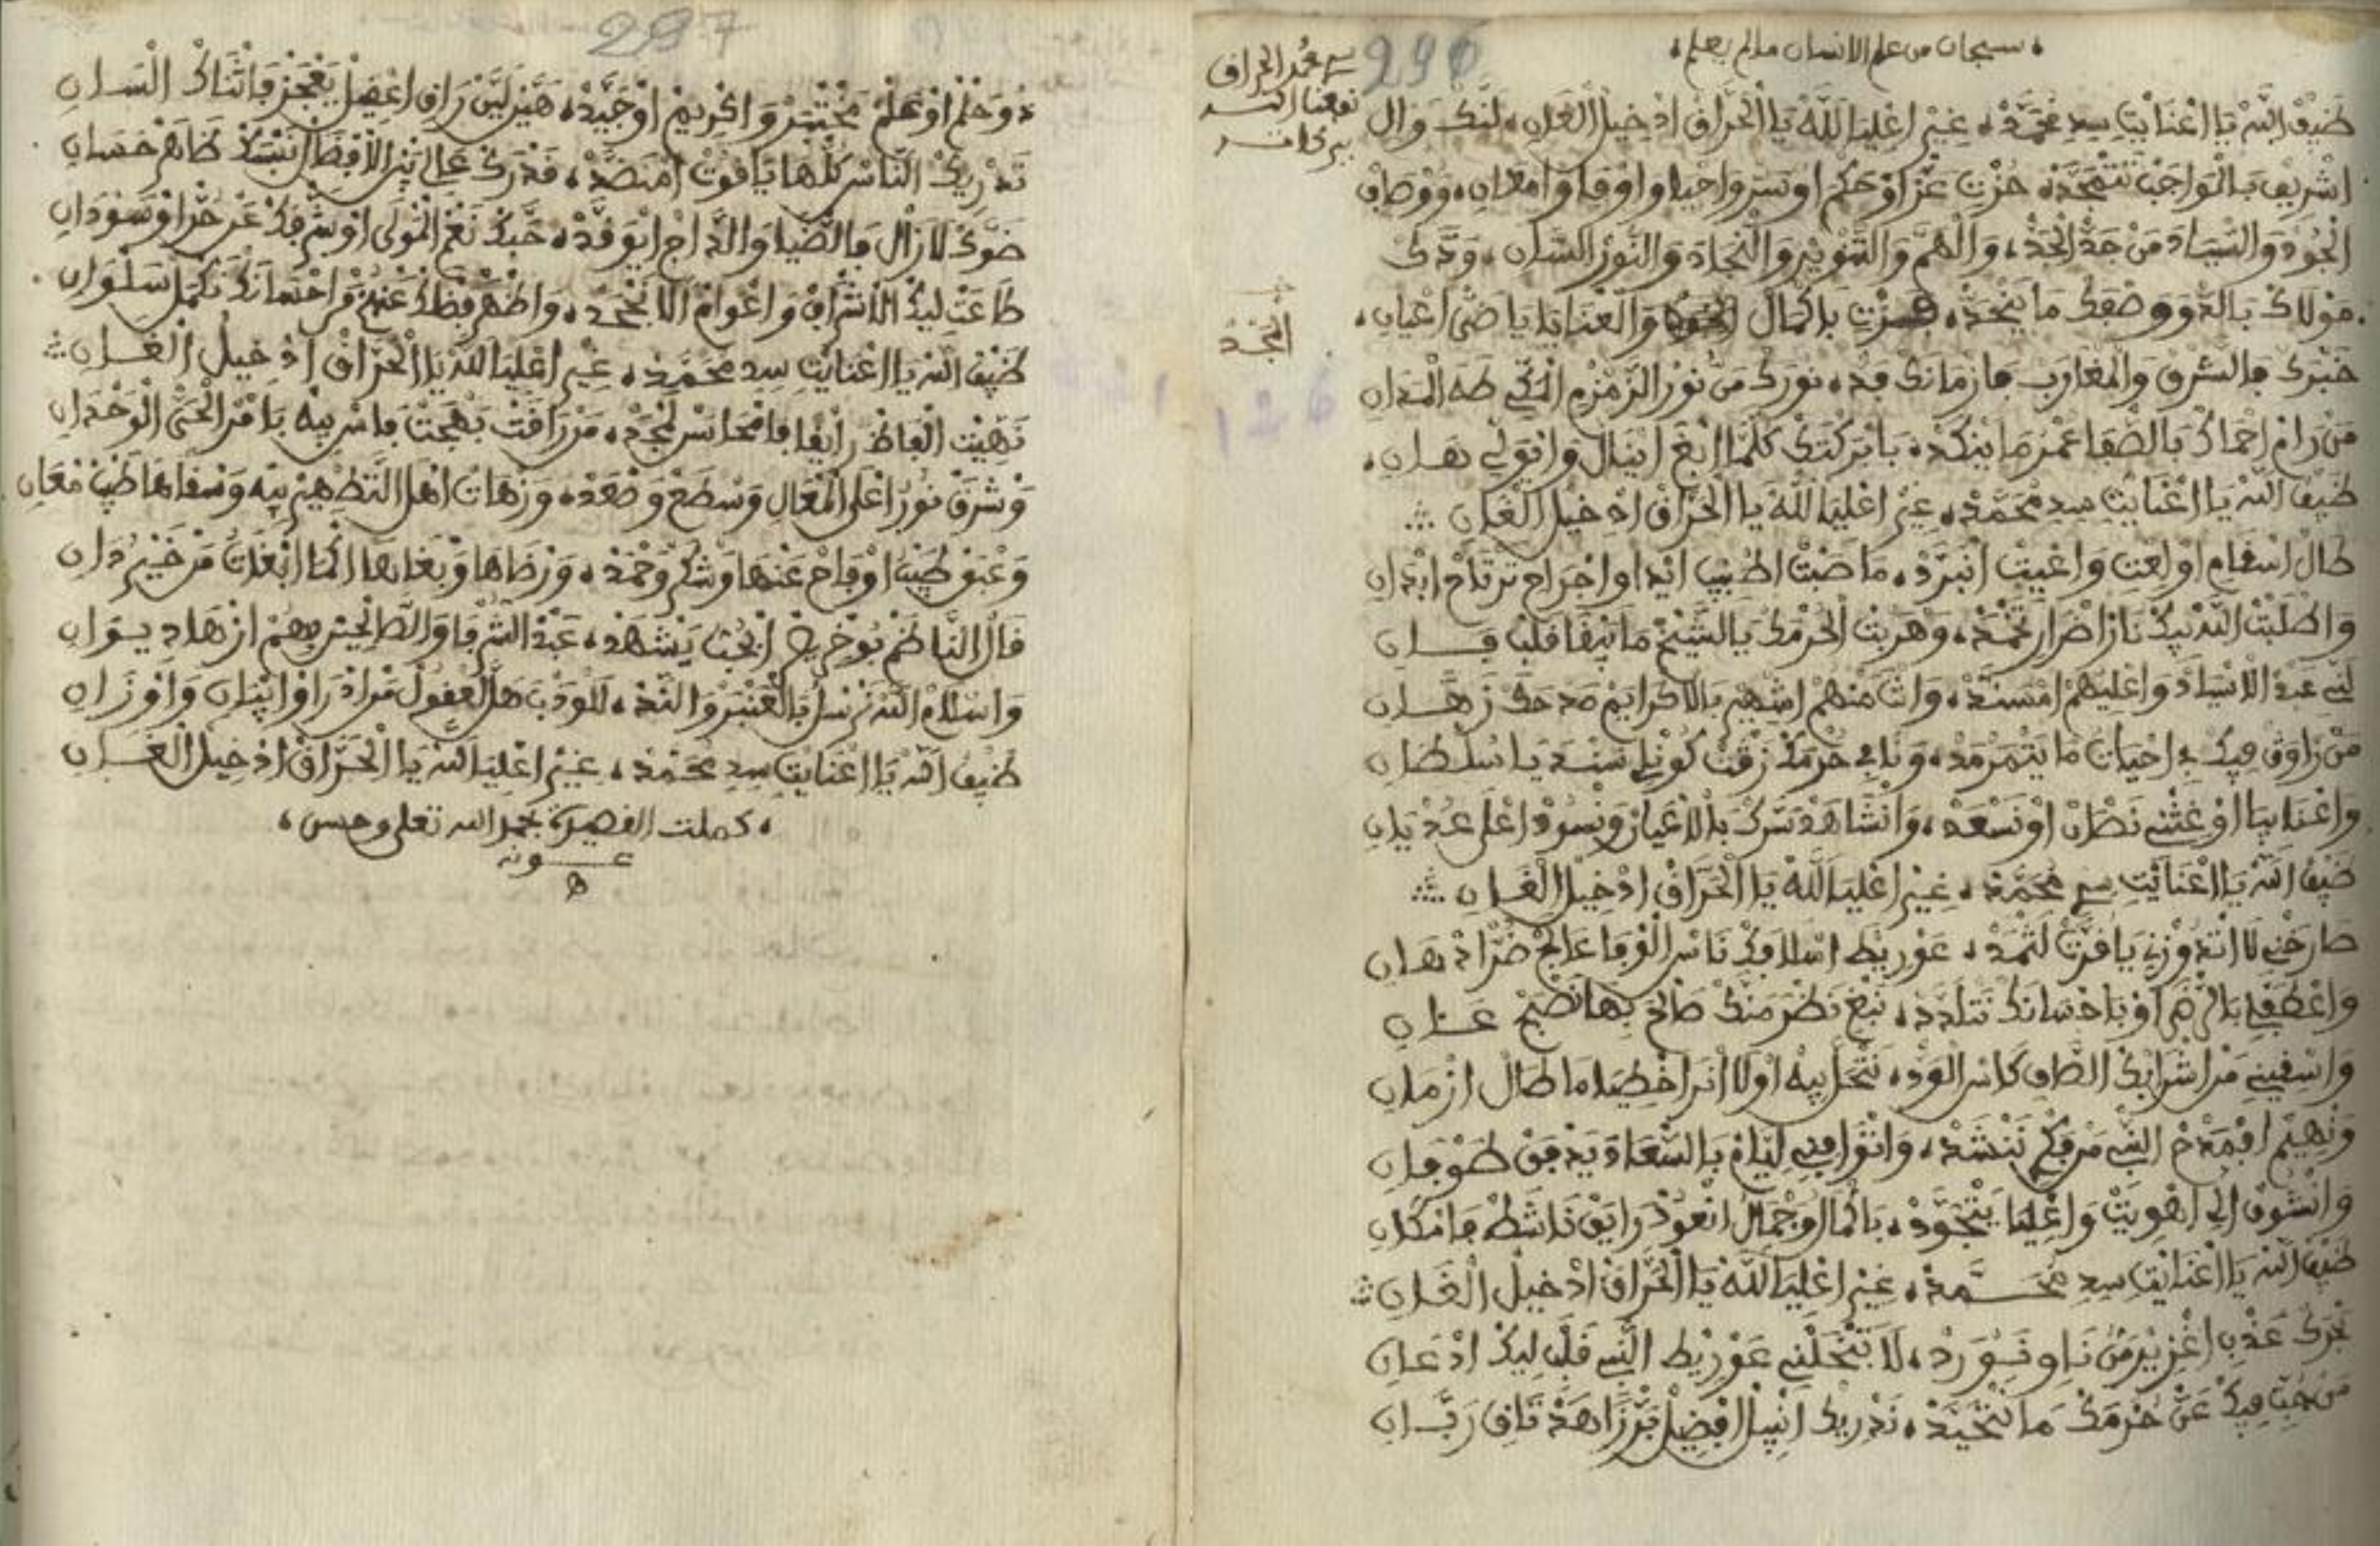 سبحان من علم الانسان ما لم يعلم
296
سي محمد الحراق
نفعنا الله
ببركاته
ضيف الله يا اعنايت سيد محمد، غير اعليا لله يا الحراق ادخيل الغران، لنك وال
اشريف بالمواجب تتمجد، حزت عز اوحكم اوسر واحيا واوفا وامعان، ووصاف
الجود والسياد من جد الجد، والهم والتنوير والنجاد والنور السان، ودك
مولاك بالد ووضعك ما يجحد، حزت بالكمال الجود والعنايا يا ضي اعيان
المجد
خبرك فالشرق والمغارب فازمانك فد، نورك من نور الزمزم المكي طه المدان
من رام احماك بالصفا عمر ما ينكد، بابركتك كلما ابغ اينال وايولي هان
ضيف الله يا اعنايت سيد محمد، غير اعليا لله يا الحراق ادخيل الغران
126
طال اسقام اولعت واغيت انبرد، ما صبت اطبيب ايداوا اجراح ترتاح ابدان
واطلبت الله بيك نار اضرار تخمد، وهربت الحرمك يا الشيخ ما يبقا قلب فان
لني عبد الاسياد واعليهم امسند، وانت منهم اشهير بالاكرايم مدحك زهان
من زاوق فيك ف احيات ما يتمرمد، وناف حرمك زقت كونلي سند يا سلطان
واعنايا اوغثني نظرا اونسعد، وانشاهد سرك بالاعيان ونسود اعلى عديان
ضيف الله يا اعنايت سي محمد، غير اعليا لله يا الحراق ادخيل الغران
صارخني لا اتدوزني يا فرت لثمد، عوريط اسلافك ناس الوفا عالج ضر ادهان
واعطفلي بالرضى اوباحسانك نتلدد، نبغ نظر منك صالح بها نصبح عان
واسقيني من اشرابك الصاف كاس الود، نتحل بيه اولا انرا خطيا ما طال ازمان
ونهيم افمدح النبي مرفكم ننشد، واتوافيني ليام بالسعاد يدفق طوفان
وانشوف الي اهويت واعليا يتجود، باكمال وجمال انعود رايق ناشط فامكان
ضيف الله يا اعنايت سيد محمد، غير اعليا لله يا الحراق ادخيل الغران
بحرك عدب اغزير من ناو نورد، لا تنحلني عوريط النبي قلب ليك ادعان
من جيت فيك عن حرمك ما نتحيد، ندريك انبيل افضيل برزاهد تاق ربان
297
دو حلم اوعلم مختبر واكريم اوجيد، هين لين راق اعقيل يعجز فاثناك السان
تدريك الناس كلها ياقوت امنضد، قدرك عالي بن الافضال نسبك ظاهر حسان
ضوك لازال فالضيا والداج ايوقد، حبك نعم المولى اوشرفك عن حر اوسودان
طاعت ليك الاشراف واعوام الا تجحد، واظهر فضلك عنهم واحتمانك نكمل سلوان
ضيف الله يا اعنايت سيد محمد، غير اعليا لله يا الحراق ادخيل الغران
تهيت الفاظ رايقا فامحاسن لمجد، من رافت بهجت فاس بيه بامر الحي الوحدان
وشرق نور اعلى المعال وسطع وصعد، وزهات اهل التطهير بيه وسقاها طيب معان
وعبق طيب اوفاح عنها وشكر وحمد، ورضاها وبغاها اكما ابغات من خير دان
قال الناظم بوخريص ابحت يشهد، عبد الشرفا والطالحين بيهم ازهاد يوان
واسلام الله نرسل بالعنبر والند، للودب هل العقول من ادراوا ابيان واوزان
ضيف الله يا اعنايت سيد محمد، غير اعليا لله يا الحراق ادخيل الغران
كملت القصيدة بحمد الله تعلى وحسن
عونه
ه